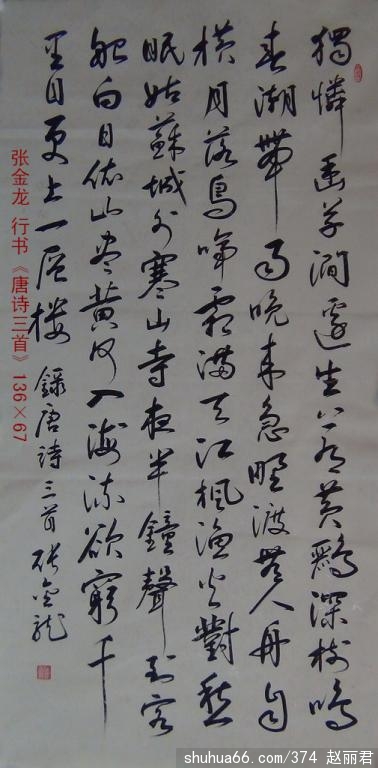 獨憐幽草澗邊生上有黄鸝深樹鳴
春潮帶雨晚來急野渡無人舟自
横月落烏啼霜滿天江楓漁火對愁
眠姑蘇城外寒山寺夜半鐘聲到客
船白日依山盡黄河入海流欲窮千
里目更上一层楼 錄唐詩三首 張金龍
张金龙 行书《唐诗三首》136×67
shuhua66.com/374 赵丽君